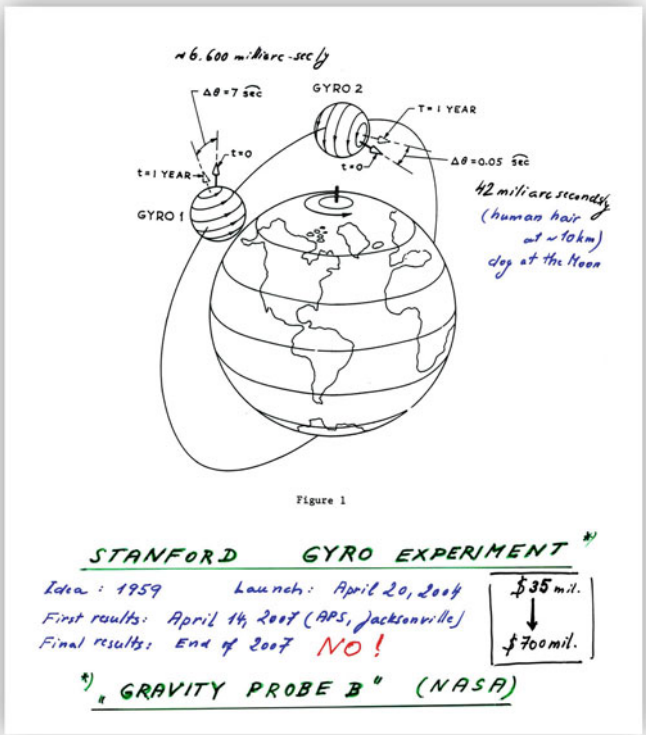 ~6.600 milliarc-sec/y
Δθ = 7 sec
GYRO 2
T = 1 YEAR
t=0
t=0
Δθ = 0.05 sec
t = 1 YEAR
GYRO 1
42 miliarcseconds/y
(human hair
at ~10km)
dog at the Moon
Figure 1
STANFORD GYRO EXPERIMENT *)
Idea : 1959 Launch: April 20, 2004
$35 mil.
First results: April 14, 2007 (APS, Jacksonville)
Final results: End of 2007 NO!
$700 mil.
*) „GRAVITY PROBE B" (NASA)